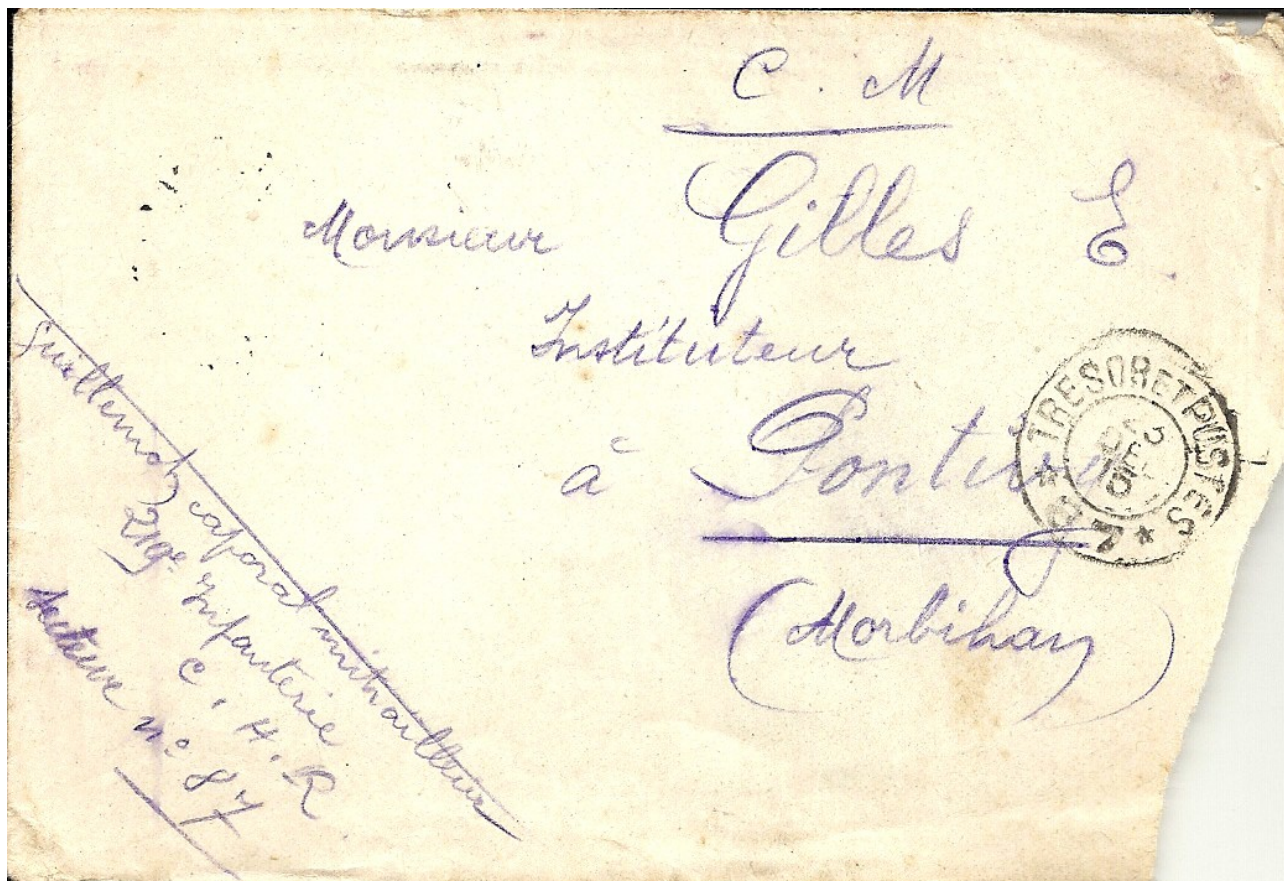 C. M
Monsieur Gilles E.
Instituteur
à Pontivy
(Morbihan)
TRESOR ET POSTES
87
caporal mitrailleur
219e Infanterie
C. H. R
secteur no 87